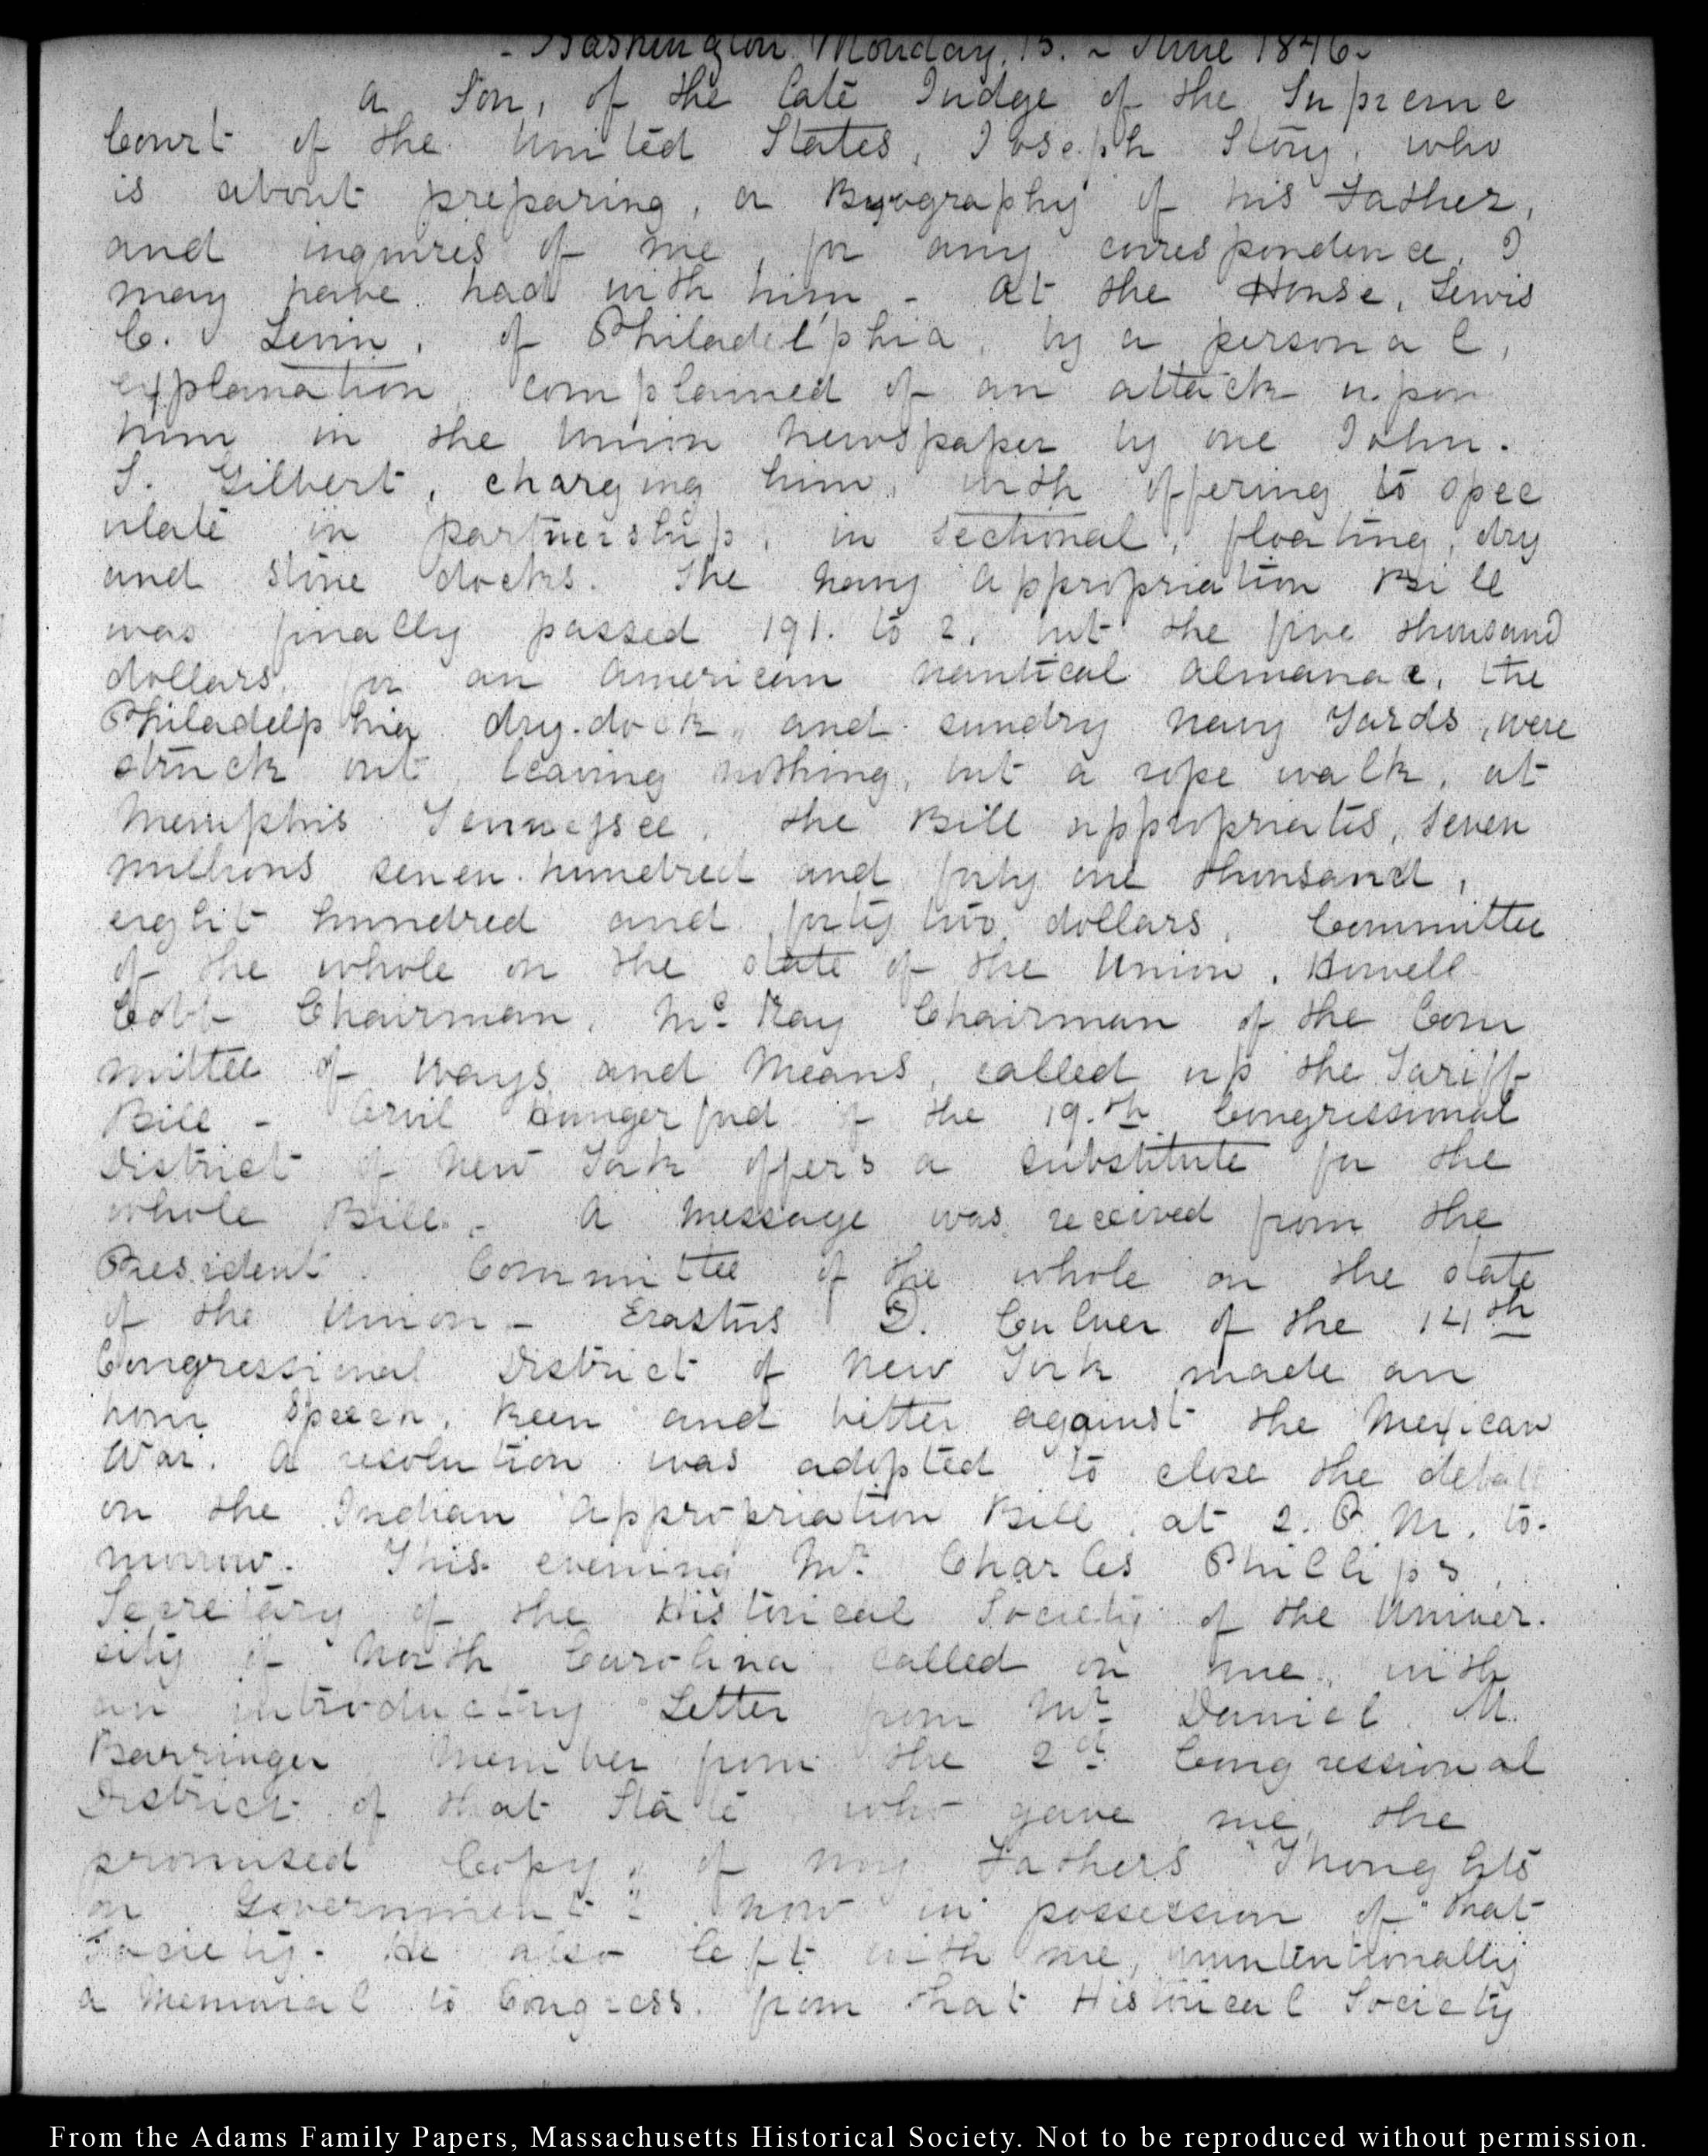 - Washington Monday. 15. - June 1846-
A Son, of the late Judge of the Supreme
Court of the United States, Joseph Story, who
is about preparing, a Byography of his Father,
and inquires of me, for any correspondence, I
may have had with him - At the House, Lewis
C. Levin, of Philadelphia, by a personal,
explanation, complained of an attack upon
him in the Union Newspaper by one John.
S. Gilbert, charging him, with offering to spec
ulate in partnership, in sectional, floating, dry
and stone docks. The Navy Appropriation Bill
was finally passed 191. to 2. but the five thousand
dollars, for an American Nautical Almanac, the
Philadelphia dry-dock, and sundry Navy Yards, were
struck out, leaving nothing, but a rope walk, at
Memphis Tennessee. The Bill appropriates, seven
millions seven hundred and forty one thousand,
eight hundred and forty two dollars. Committee
of the whole on the state of the Union, Howell
Cobb Chairman. Mc. Kay Chairman of the Com
mittee of Ways and Means, called up the Tariff
Bill - Orvil Hungerford of the 19.th Congressional
District of New York offers a substitute for the
whole Bill. - A Message was received from the
President. Committee of the whole on the state
of the Union - Erastus D. Culver of the 14th
Congressional District of New York made an
hour Speech, keen and bitter against the Mexican
War. A resolution was adopted to close the debate
on the Indian Appropriation Bill, at 2. P. M. to-
morrow. This evening Mr. Charles Phillips,
Secretary of the Historical Society of the Univer-
sity of North Carolina called on me, with
an introductory Letter from Mr. Daniel M.
Barringer Member from the 2d. Congressional
District of that State who gave me, the
promised Copy, of my Fathers "Thoughts
on Government" now in possession of that
Society. He also left with me, unintentionally
a Memorial to Congress. from that Historical Society
From the Adams Family Papers, Massachusetts Historical Society. Not to be reproduced without permission.